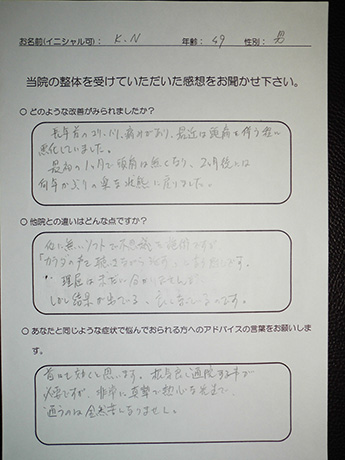 お名前(イニシャル可): K.N 年齢: 49 性別: 男
当院の整体を受けていただいた感想をお聞かせ下さい。
○ どのような改善がみられましたか?
長年首のコリ、痛みがあり、最近は頭痛を伴う程に
悪化していました。
最初の1ヶ月で頭痛は無くなり、2ヶ月後には
何年かぶりの楽な状態に戻りました。
○ 他院との違いはどんな点ですか?
他に無いソフトで不思議な施術ですが、
「カラダの声を聴きながら
理屈は未だに分かりませんが
しかし結果が出ている
○ あなたと同じような症状で悩んでおられる方へのアドバイスの言葉をお願いしま
す。
思います。根気良く通院する事が
必要ですが、非常に真摯で熱心な先生で
通うのは全然苦になりません。